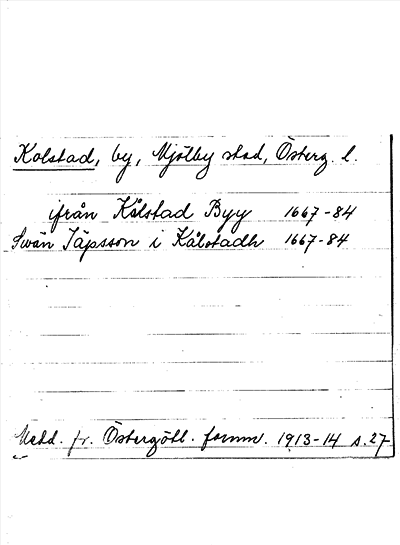 Kolstad, by, Mjölby stad, Österg. l.
ifrån Kålstad Byy 1667-84
Swän Jäpsson i Kålstadh 1667-84
Medd. fr. Östergötl. fornm. 1913-14 s. 27